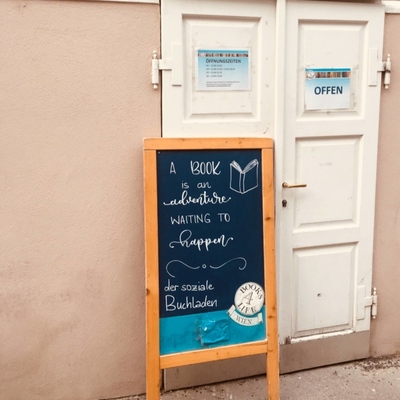 ÖFFNUNGSZEITEN
OFFEN
A BOOK
is an
adventure
WAITING TO
happen
der soziale
Buchladen
BOOKS
4
LIFE
WIEN